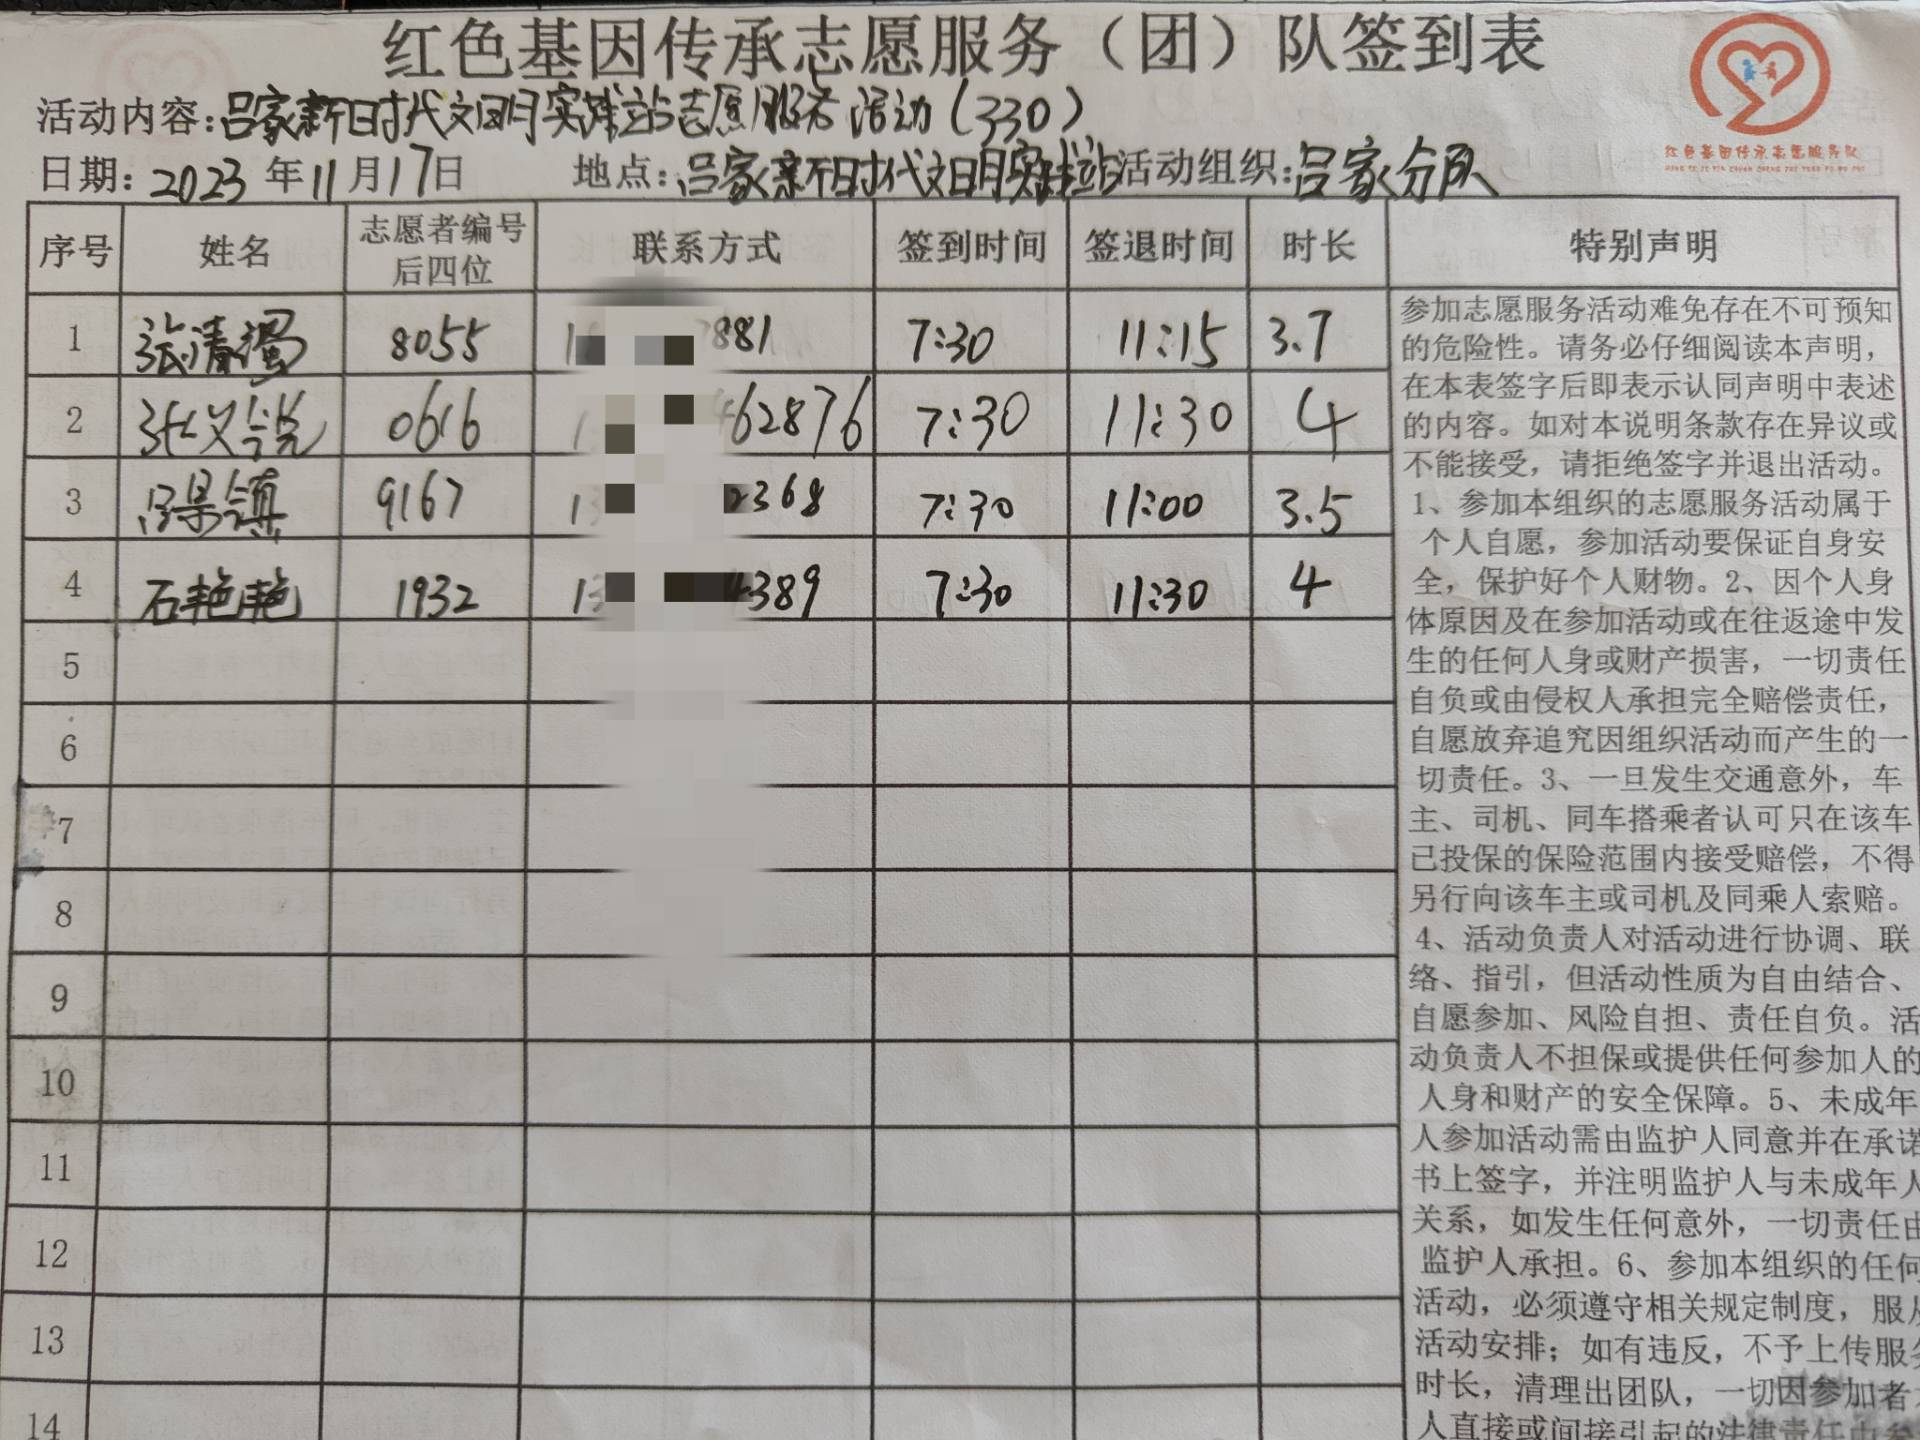 红色基因传承志愿服务（团）队签到表
活动内容：吕家新时代文明实践站志愿服务活动（330）
日期：2023年11月17日 地点：吕家新时代文明实践站 活动组织：吕家分队
红色基因传承志愿服务队
序号 姓名 志愿者编号后四位 联系方式 签到时间 签退时间 时长 特别声明
1 张清 8055 881 7:30 11:15 3.7
2 张义 0616 462876 7:30 11:30 4
3 镇 9167 13 2368 7:30 11:00 3.5
4 石艳艳 1932 13 4389 7:30 11:30 4
5
6
7
8
9
10
11
12
13
14
参加志愿服务活动难免存在不可预知
的危险性。请务必仔细阅读本声明，
在本表签字后即表示认同声明中表述
的内容。如对本说明条款存在异议或
不能接受，请拒绝签字并退出活动。
1、参加本组织的志愿服务活动属于
个人自愿，参加活动要保证自身安
全，保护好个人财物。2、因个人身
体原因及在参加活动或在往返途中发
生的任何人身或财产损害，一切责任
自负或由侵权人承担完全赔偿责任，
自愿放弃追究因组织活动而产生的一
切责任。3、一旦发生交通意外，车
主、司机、同车搭乘者认可只在该车
已投保的保险范围内接受赔偿，不得
另行向该车主或司机及同乘人索赔。
4、活动负责人对活动进行协调、联
络、指引，但活动性质为自由结合、
自愿参加、风险自担、责任自负。活
动负责人不担保或提供任何参加人的
人身和财产的安全保障。5、未成年
人参加活动需由监护人同意并在承诺
书上签字，并注明监护人与未成年人
关系，如发生任何意外，一切责任由
监护人承担。6、参加本组织的任何
活动，必须遵守相关规定制度，服从
活动安排；如有违反，不予上传服务
时长，清理出团队，一切因参加者
人直接或间接引起的法律责任由参